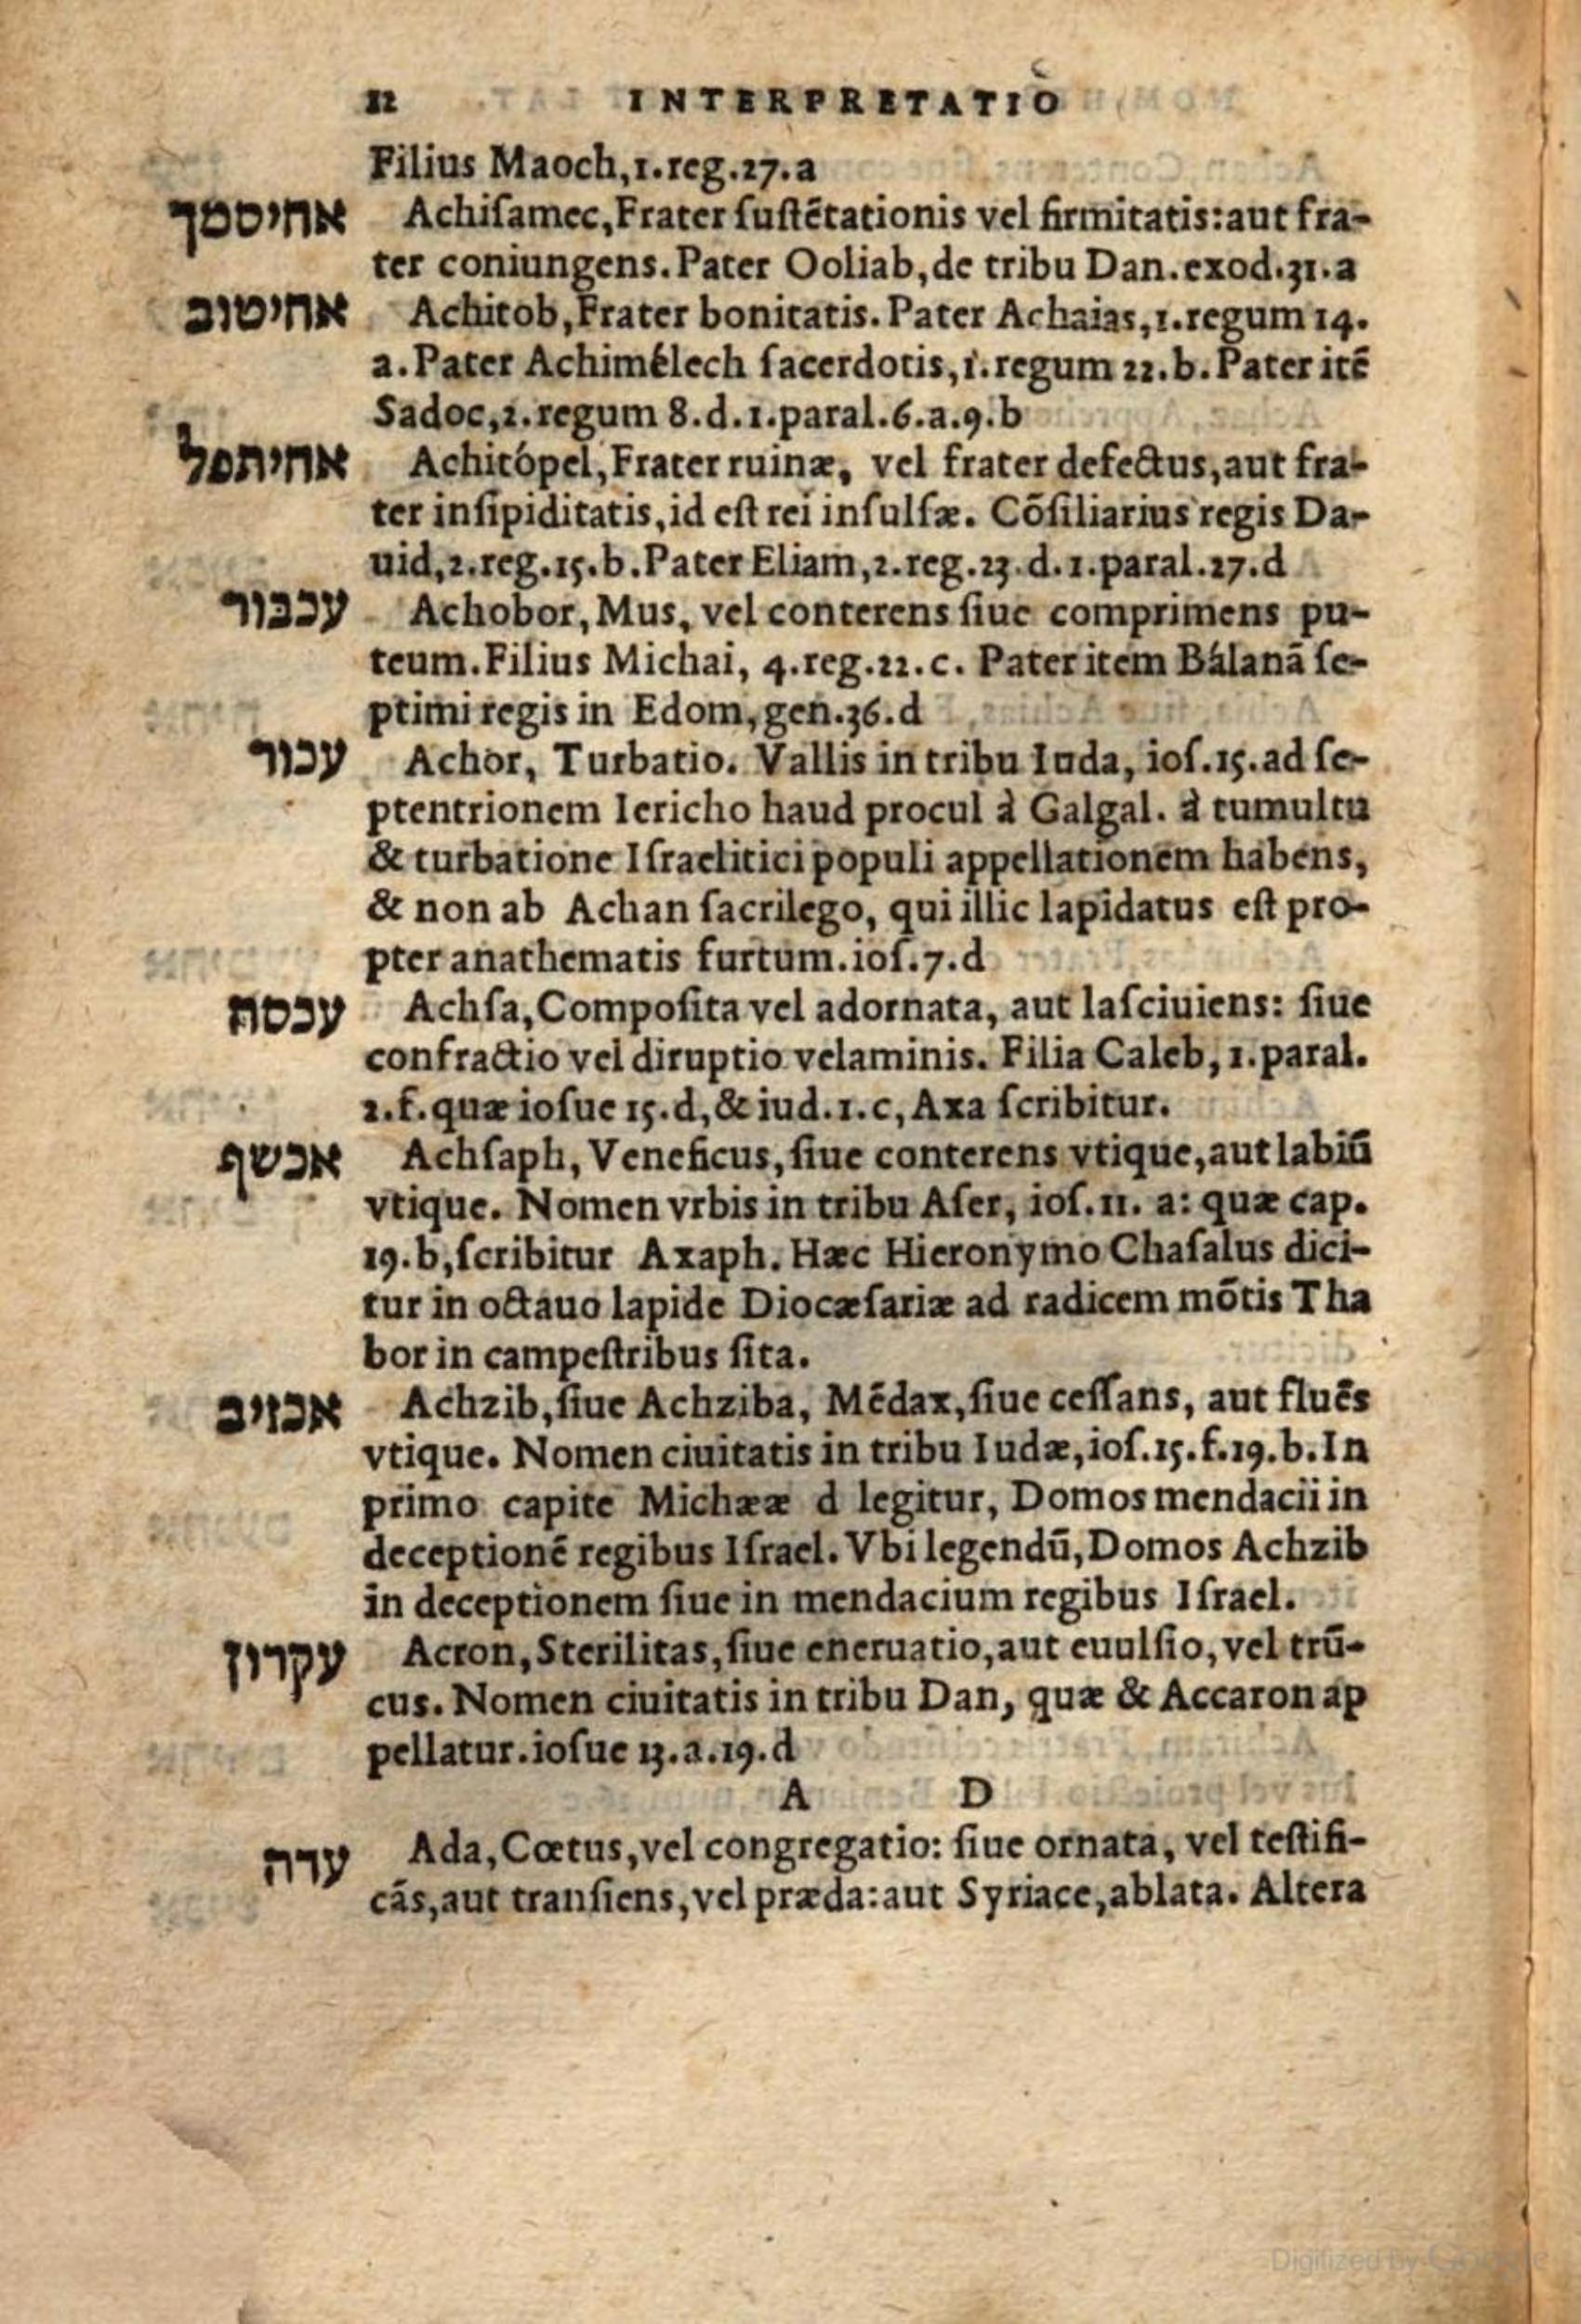 12 INTERPRETATIO
Filius Maoch,1.reg.27.a
אחיסמך Achiſamec,Frater ſuſtētationis vel firmitatis:aut fra-
ter coniungens.Pater Ooliab,de tribu Dan.exod.31.a
אחיטוב Achitob,Frater bonitatis.Pater Achaias,1.regum 14.
a.Pater Achimélech ſacerdotis,1.regum 22.b.Pater itē
Sadoc,2.regum 8.d.1.paral.6.a.9.b
אחיתפל Achitópel,Frater ruinæ, vel frater defectus,aut fra-
ter inſipiditatis,id eſt rei inſulſæ. Cōſiliarius regis Da-
uid,2.reg.15.b.Pater Eliam,2.reg.23.d.1.paral.27.d
עכבור Achobor,Mus, vel conterens ſiue comprimens pu-
teum.Filius Michai, 4.reg.22.c. Pater item Bálanā ſe-
ptimi regis in Edom,gen.36.d
עכור Achor, Turbatio. Vallis in tribu Iuda, ioſ.15.ad ſe-
ptentrionem Iericho haud procul à Galgal. à tumultu
& turbatione Iſraelitici populi appellationem habens,
& non ab Achan ſacrilego, qui illic lapidatus eſt pro-
pter anathematis furtum.ioſ.7.d
עכסה Achſa,Compoſita vel adornata, aut laſciuiens: ſiue
confractio vel diruptio velaminis. Filia Caleb,1.paral.
2.f.quæ ioſue 15.d,& iud.1.c,Axa ſcribitur.
אכשף Achſaph, Veneficus,ſiue conterens vtique,aut labiū
vtique. Nomen vrbis in tribu Aſer, ioſ.11. a: quæ cap.
19.b,ſcribitur Axaph. Hæc Hieronymo Chaſalus dici-
tur in octauo lapide Diocæſariæ ad radicem mōtis Tha
bor in campeſtribus ſita.
אכזיב Achzib,ſiue Achziba, Mēdax,ſiue ceſſans, aut fluēs
vtique. Nomen ciuitatis in tribu Iudæ,ioſ.15.f.19.b.In
primo capite Michææ d legitur, Domos mendacii in
deceptionē regibus Iſrael.Vbi legendū,Domos Achzib
in deceptionem ſiue in mendacium regibus Iſrael.
עקרון Acron,Sterilitas,ſiue eneruatio,aut euulſio,vel trū-
cus. Nomen ciuitatis in tribu Dan, quæ & Accaron ap
pellatur.ioſue 13.a.19.d
A D
עדה Ada,Cœtus,vel congregatio: ſiue ornata, vel teſtifi-
cās,aut tranſiens,vel præda:aut Syriace,ablata. Altera
Digitized by Google